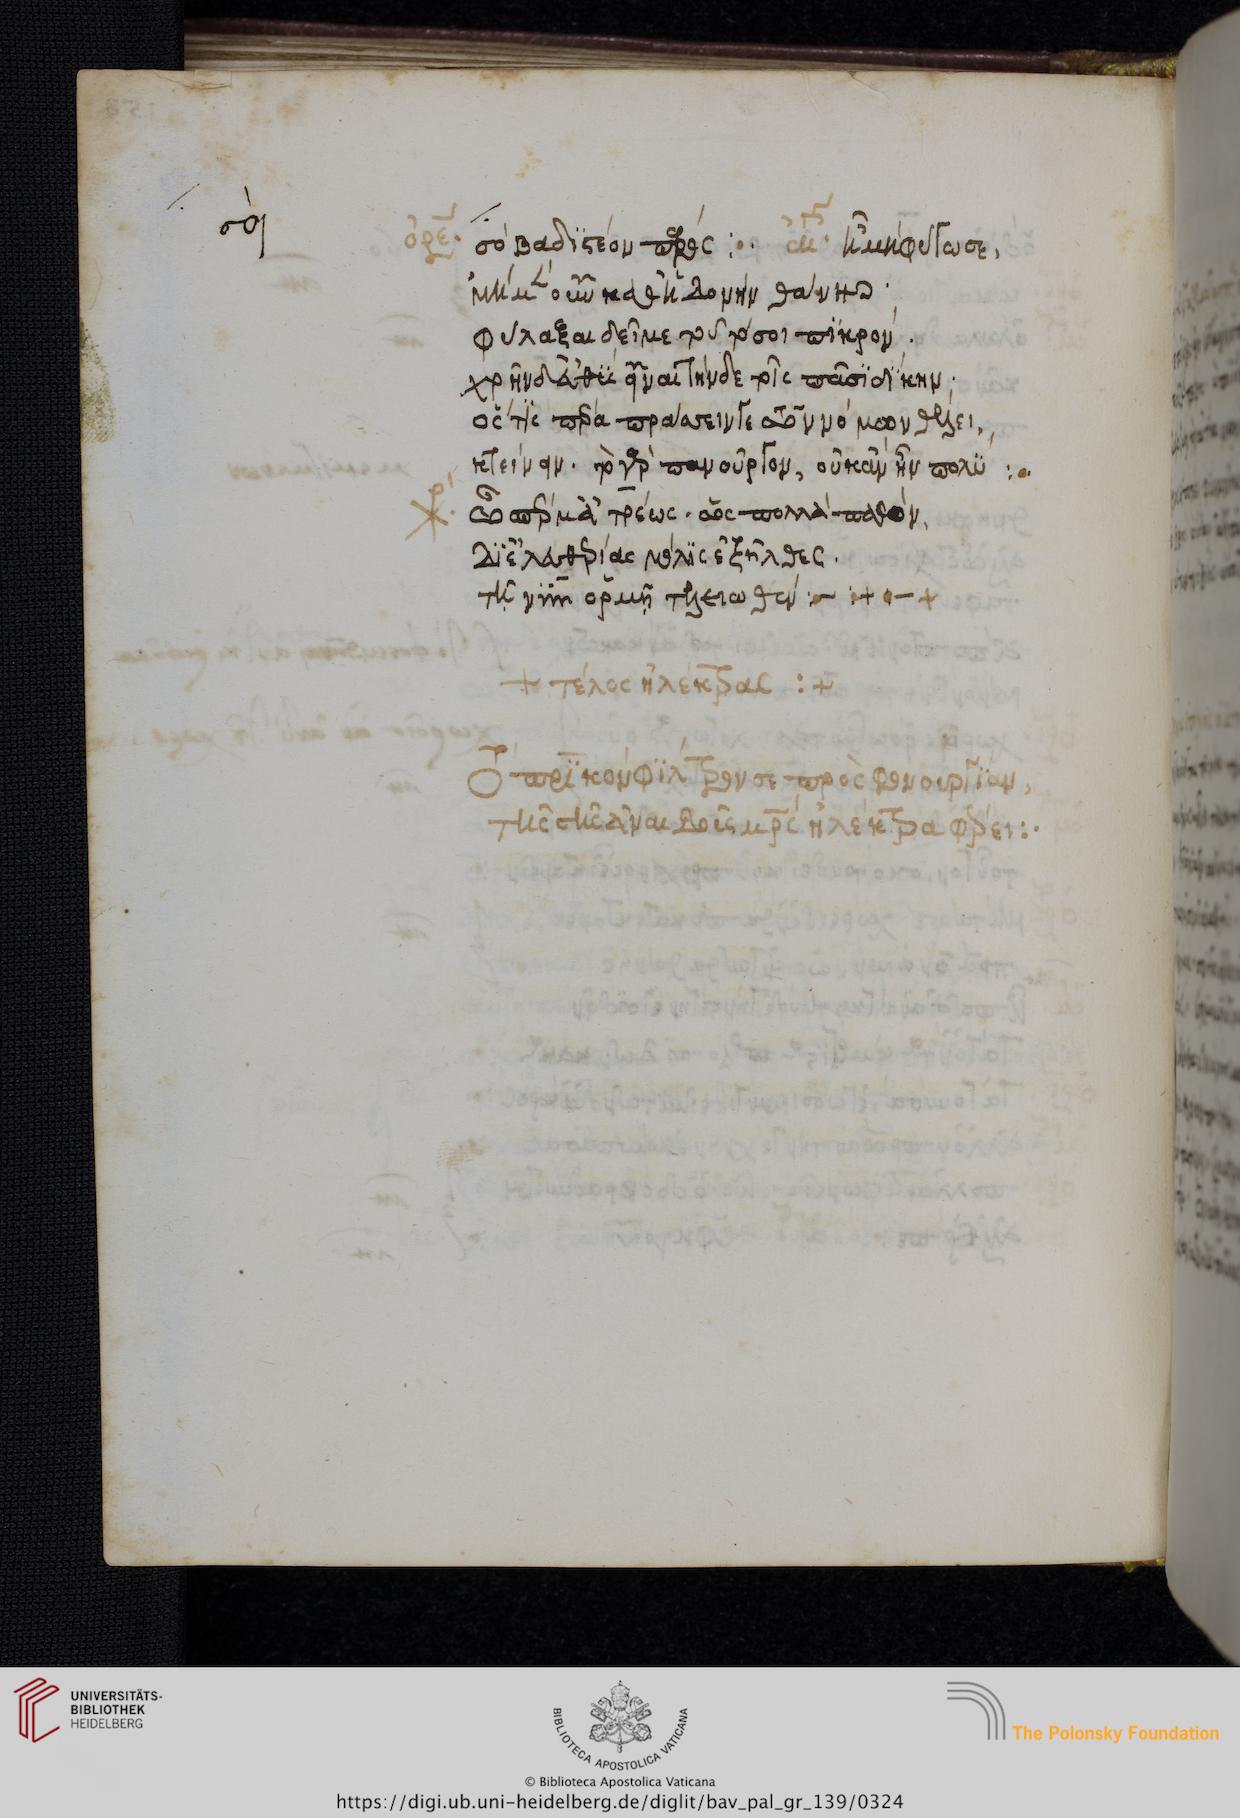 σοὶ
ὀρε. σὸ βαδϊστέον πάρος :· αι. ἦ μὴ φύγω σε,
μὴ μὲν οὖν καθ' ἡδονὴν θάνης·
φυλάξαι δεῖ με τοῦτό σοι πϊκρόν.
χρῆν δ' εὐθὺς εἶναι τήνδε τοῖς πᾶσϊ δίκην,
ὅστις πέρα πράσσειν γε τῶν νόμων θέλει,
κτείνειν. τὸ γὰρ πανοῦργον, οὐκ ἂν ἦν πολύ :·
χο. ὦ σπέρμ' ἀτρέως. ὡς πολλὰ παθὸν,
δϊ' ἐλευθερίας μόλϊς ἐξῆλθες.
τῇ νῦν ὁρμῇ τελειωθέν :- :+ - +
+ τέλος ἠλέκτρας : +
τῆς ἠλέκτρα φέρει :·
UNIVERSITÄTS-
BIBLIOTHEK
HEIDELBERG
BIBLIOTECA APOSTOLICA VATICANA
The Polonsky Foundation
© Biblioteca Apostolica Vaticana
https://digi.ub.uni-heidelberg.de/diglit/bav_pal_gr_139/0324